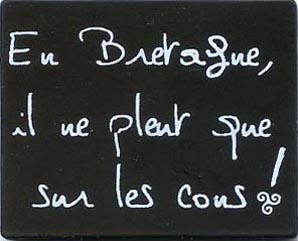 En Bretagne,
il ne pleut que
sur les cons !